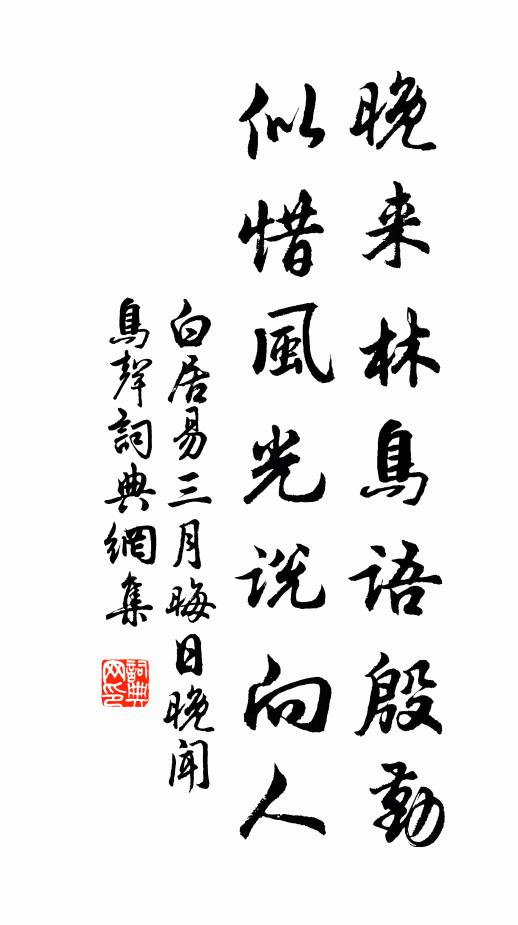 晚来林鳥語殷勤
似惜風光説向人
白居易三月晦日晚聞
鳥聲詞典網集
詞典网印